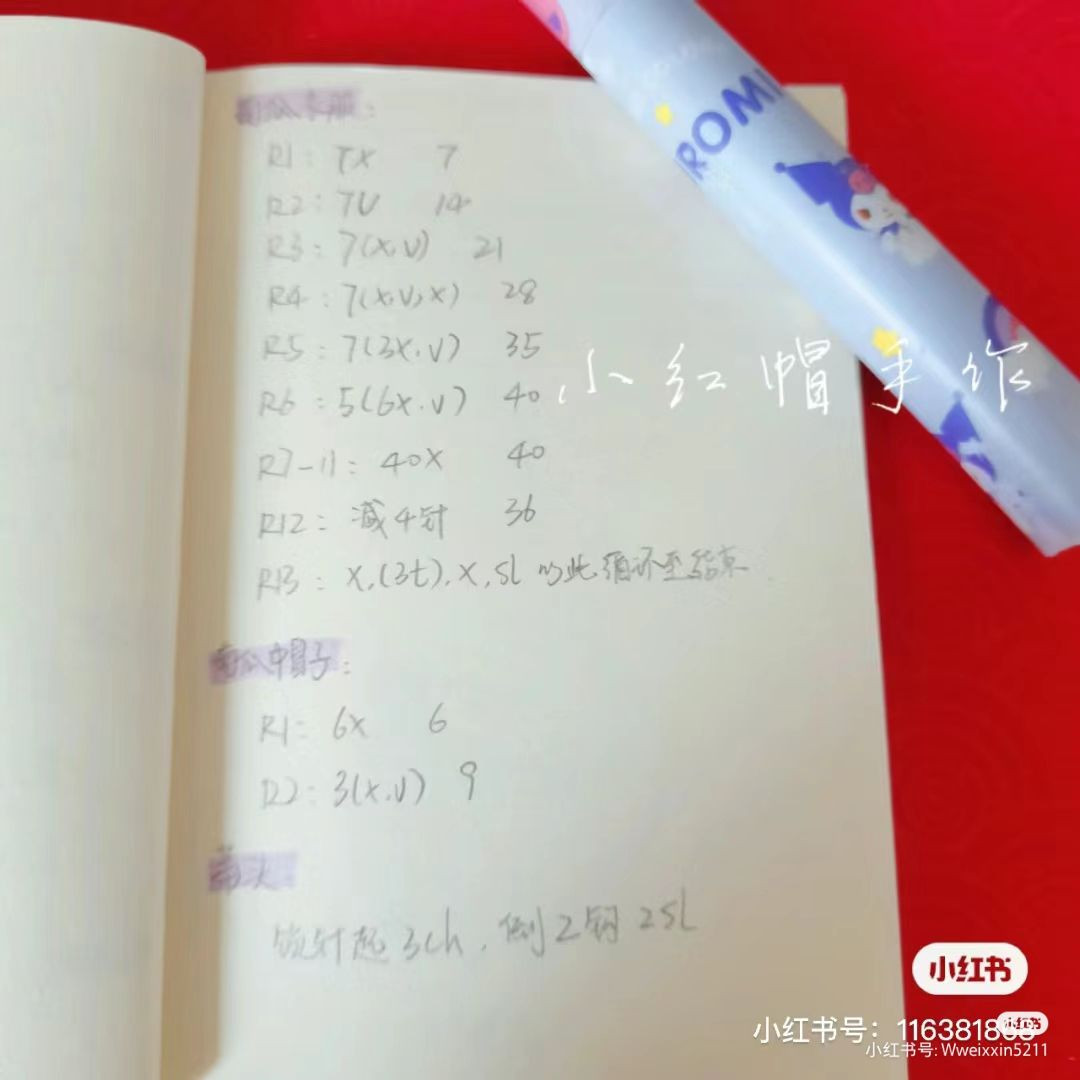 ROMI
R1: 7X 7
R2: 7V 14
R3: 7(X,V) 21
R4: 7(X,V,X) 28
R5: 7(3X,V) 35
R6: 5(6X,V) 40
小红帽手作
R7-11: 40X 40
R12: 减4针 36
R13: X,(3t),X,sl 以此循环至结束
南瓜帽子:
R1: 6X 6
R2: 3(X,V) 9
锁针起3ch,倒2钩2sl
小红书
小红书号:
小红书号: Wweixxin5211